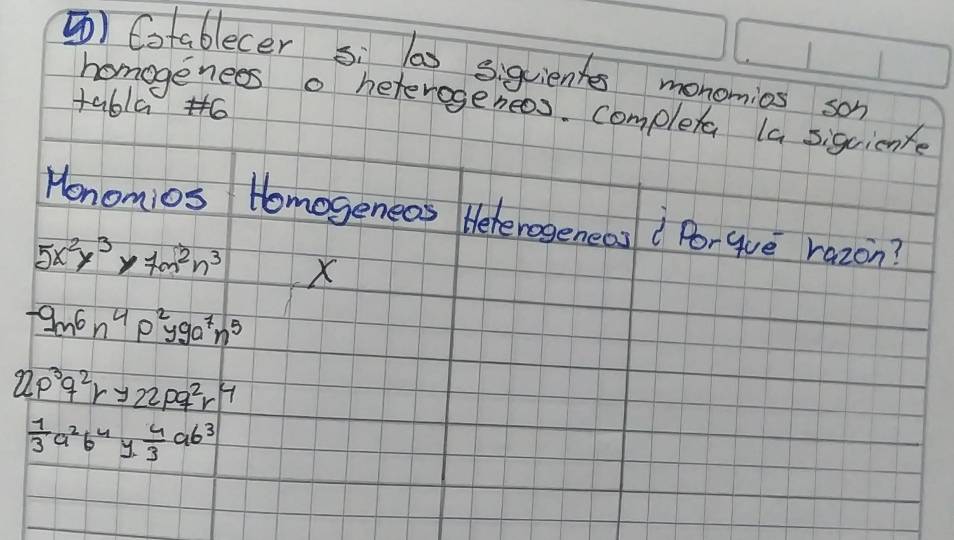 5) Establecer si los siguientes monomios son
homogéneos o heterogeneos. completa la siguiente
tabla #6
Monomios Homogeneos Heterogeneos ¿Porqué razón?
5x²y³ y 7m²n³ X
-9m⁶n⁴p² y 9a⁷n⁵
22p³q²r y 22pq²r⁴
1/3 a²b⁴ y 4/3 ab³